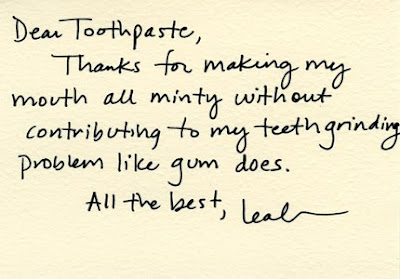 Dear Toothpaste,
Thanks for making my
mouth all minty without
contributing to my teeth grinding
problem like gum does.
All the best, Leah